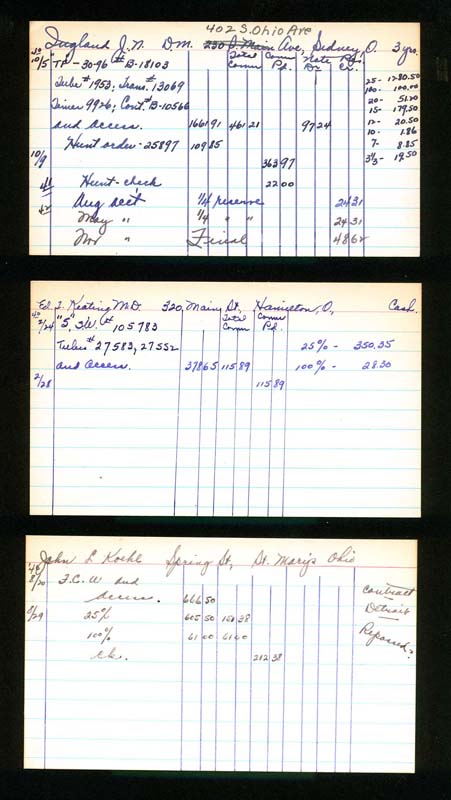 402 S. Ohio Ave
40 England J. N. D.M. 230 S. Main Ave, Sidney, O. 3 yrs.
Total Comm Comm Pd. Note Dr. Cr.
10/5 "TP" - 30-96 # B-18103 25 - 1280.50
Tube # 1953, Trans. # 13069 100 - 100.00
Timer 9926, Cont. # B-10566 20 - 51.20
15 - 179.50
and access. 1661 91 461 21 97 24 12 - 20.50
10 - 1.86
Hunt order - 25897 109 85 7 - 8.85
10/9 363 97 3 1/3 - 19.50
41 Hunt - check 22 00
Aug acc't 1/4 reserve 24 31
42 May " 1/4 " " 24 31
Nov " Final 48 62
Ed. J. Keating M.D. 320, Main St, Hamilton, O, Cash.
Total Comm Comm Pd.
40 2/24 "5", 3W. # 105783
Tubes # 27583, 27552 25% - 350.35
and access. 378 65 115 89 100% - 28.30
2/28 115 89
John L Koehl Spring St, St. Marys Ohio
40 8/20 F.C.W and
access. 666 50 contract
25% 605 50 151 38 Detroit
100% 61 00 61 00 Repossed.
ck. 212 38